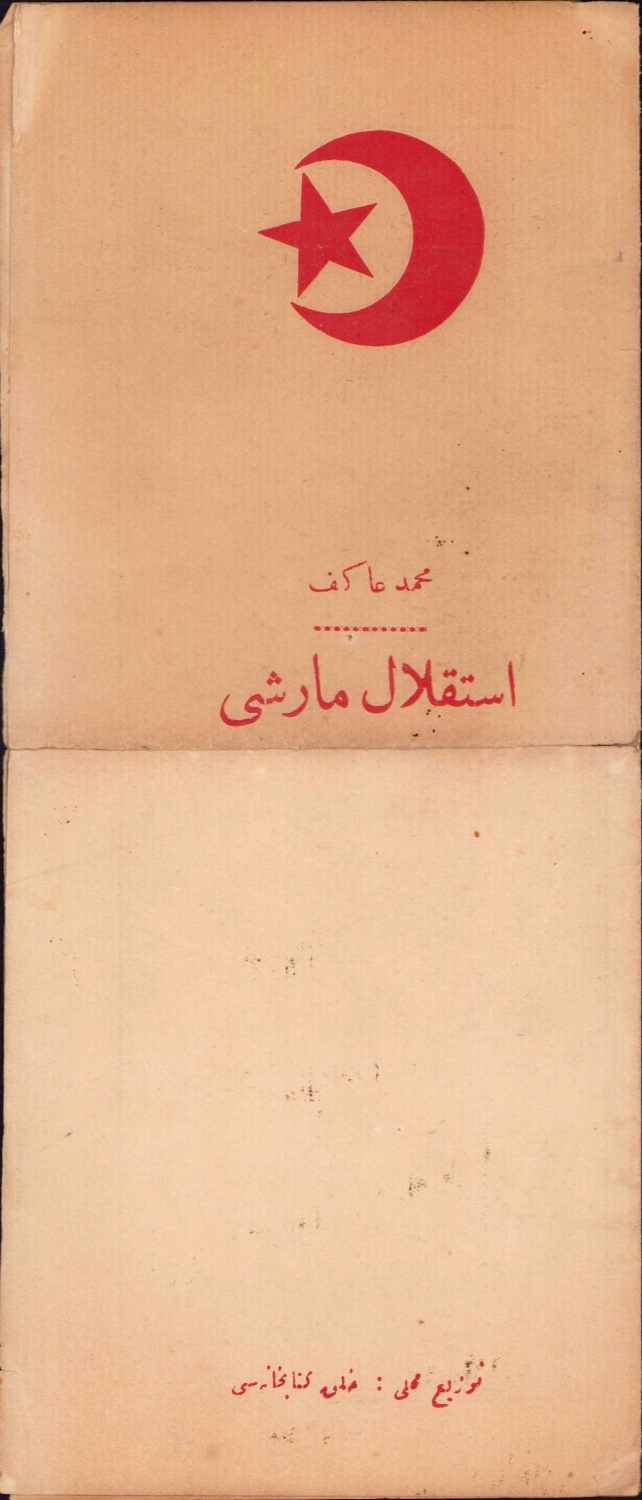 محمد عاكف
استقلال مارشی
توزيع محلی : خلق كتابخانه‌سی